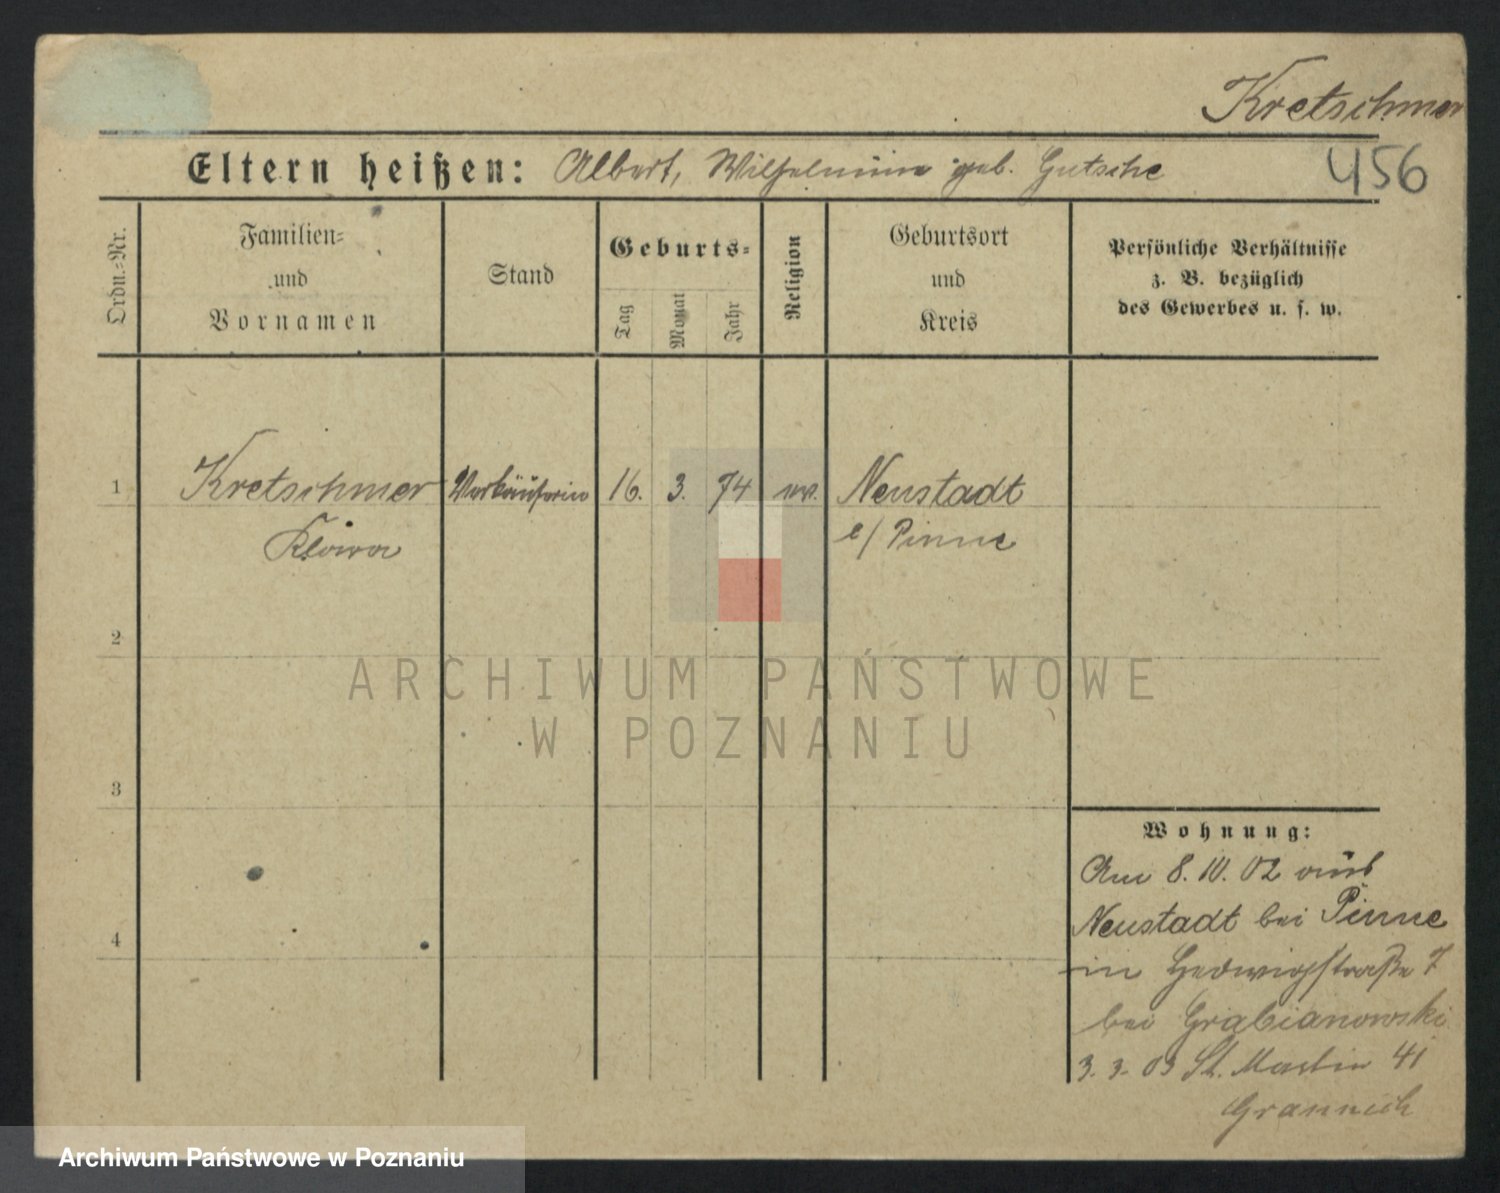 Kretschmer
Eltern heißen: Albert, Wilhelmine geb. Gutsche
456
Ordn.-Nr.
Familien-
und
Vornamen
Stand
Geburts-
Tag
Monat
Jahr
Religion
Geburtsort
und
Kreis
Persönliche Verhältnisse
z. B. bezüglich
des Gewerbes u. s. w.
1 Kretschmer Verkäuferin 16. 3. 74 ev. Neustadt
Klara b/ Pinne
2
3
4
Wohnung:
Am 8.10.02 aus
Neustadt bei Pinne
in Hedwigstraße 7
bei Grabianowski
3.3.03 St. Martin 41
ARCHIWUM PAŃSTWOWE
W POZNANIU
Archiwum Państwowe w Poznaniu